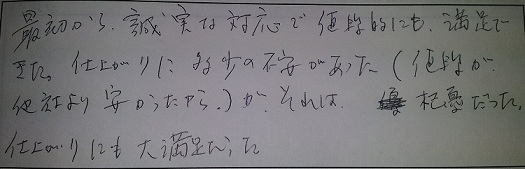 最初から、誠実な対応で値段的にも、満足で
きた。仕上がりに多少の不安があった(値段が
他社より安かったから。)が、それは、杞憂だった。
仕上がりにも大満足だった